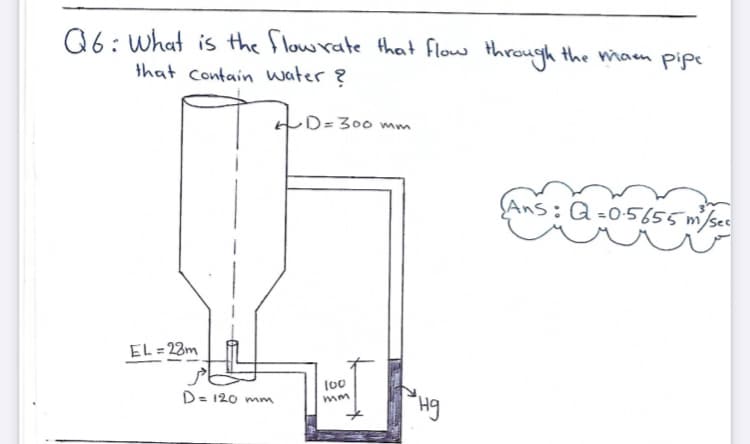 Q6: What is the flowrate that flow through the main pipe
that contain water ?
D=300 mm
Ans: Q=0.5655 m³/sec
EL=28m
100
mm
D= 120 mm
Hg